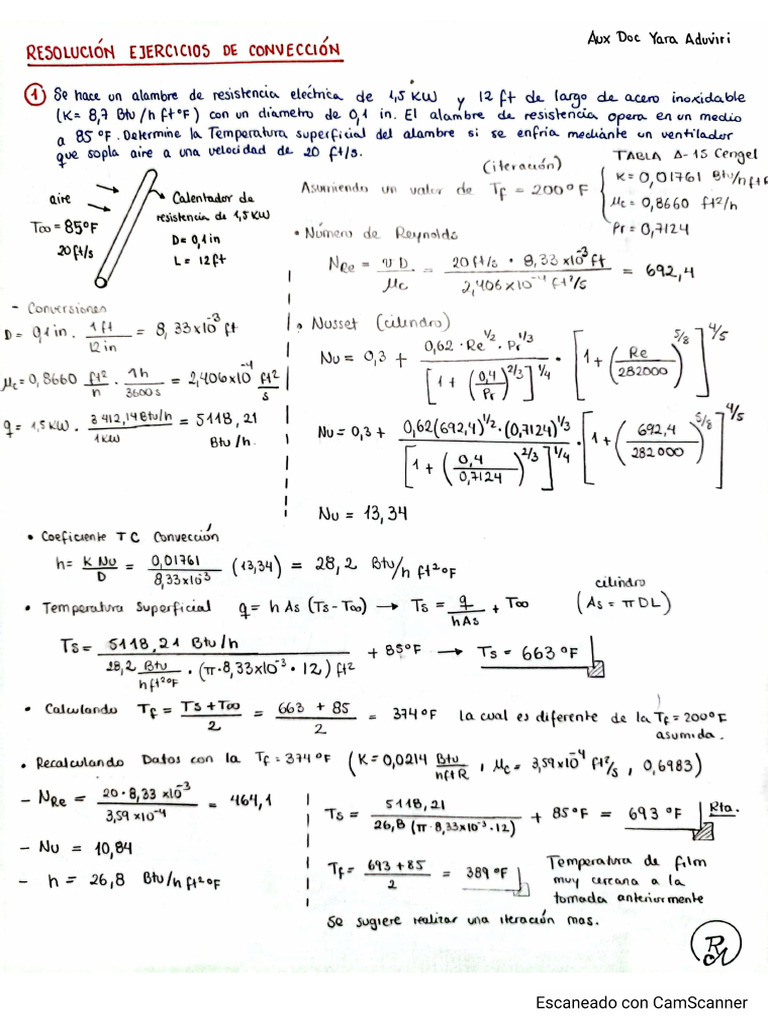 Aux Doc Yara Aduviri
RESOLUCIÓN EJERCICIOS DE CONVECCIÓN
① Se hace un alambre de resistencia eléctrica de 1,5 KW y 12 ft de largo de acero inoxidable
(K = 8,7 Btu/h ft°F) con un diametro de 0,1 in. El alambre de resistencia opera en un medio
a 85 °F. Determine la Temperatura superficial del alambre si se enfria mediante un ventilador
que sopla aire a una velocidad de 20 ft/s.
aire
T∞ = 85°F
20 ft/s
Calentador de
resistencia de 1,5 KW
D = 0,1 in
L = 12 ft
(iteración)
Asumiendo un valor de Tf = 200°F
TABLA A-15 Cengel
K = 0,01761 Btu/h ft°
μc = 0,8660 ft²/h
Pr = 0,7124
- Conversiones
D = 0,1 in . 1 ft / 12 in = 8,33x10⁻³ ft
μc = 0,8660 ft²/h . 1h / 3600 s = 2,406x10⁻⁴ ft²/s
q = 1,5 KW . 3 412,14 Btu/h / 1 KW = 5118,21 Btu/h.
• Número de Reynolds
NRe = υ D / μc = 20 ft/s · 8,33x10⁻³ ft / 2,406x10⁻⁴ ft²/s = 692,4
• Nusset (cilindro)
Nu = 0,3 + 0,62 · Re^1/2 · Pr^1/3 / [1 + (0,4/Pr)^2/3]^1/4 · [1 + (Re/282000)^5/8]^4/5
Nu = 0,3 + 0,62(692,4)^1/2 · (0,7124)^1/3 / [1 + (0,4/0,7124)^2/3]^1/4 · [1 + (692,4/282000)^5/8]^4/5
Nu = 13,34
• Coeficiente TC Convección
h = K Nu / D = 0,01761 / 8,33x10⁻³ (13,34) = 28,2 Btu/h ft²°F
• Temperatura Superficial q = h As (Ts - T∞) → Ts = q / hAs + T∞ cilindro (As = πDL)
Ts = 5118,21 Btu/h / 28,2 Btu/hft²°F · (π · 8,33x10⁻³ · 12) ft² + 85°F → Ts = 663 °F
• Calculando Tf = Ts + T∞ / 2 = 663 + 85 / 2 = 374°F la cual es diferente de la Tf = 200°F
asumida.
• Recalculando Datos con la Tf = 374°F (K = 0,0214 Btu/hftR , μc = 3,59x10⁻⁴ ft²/s , 0,6983)
- NRe = 20 · 8,33 x10⁻³ / 3,59 x10⁻⁴ = 464,1
- Nu = 10,84
- h = 26,8 Btu/h ft²°F
Ts = 5118,21 / 26,8 (π · 8,33x10⁻³ · 12) + 85°F = 693 °F Rta.
Tf = 693 + 85 / 2 = 389 °F
Temperatura de film
muy cercana a la
tomada anteriormente
Se sugiere realizar una iteración mas.
Escaneado con CamScanner